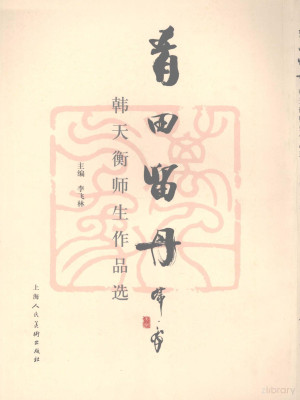 青田留丹
韩天衡师生作品选
主编 李飞林
上海人民美术出版社